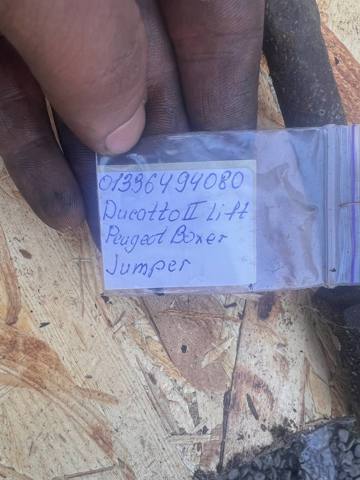 01396494080
Ducatto II lift
Peugeot Boxer
Jumper